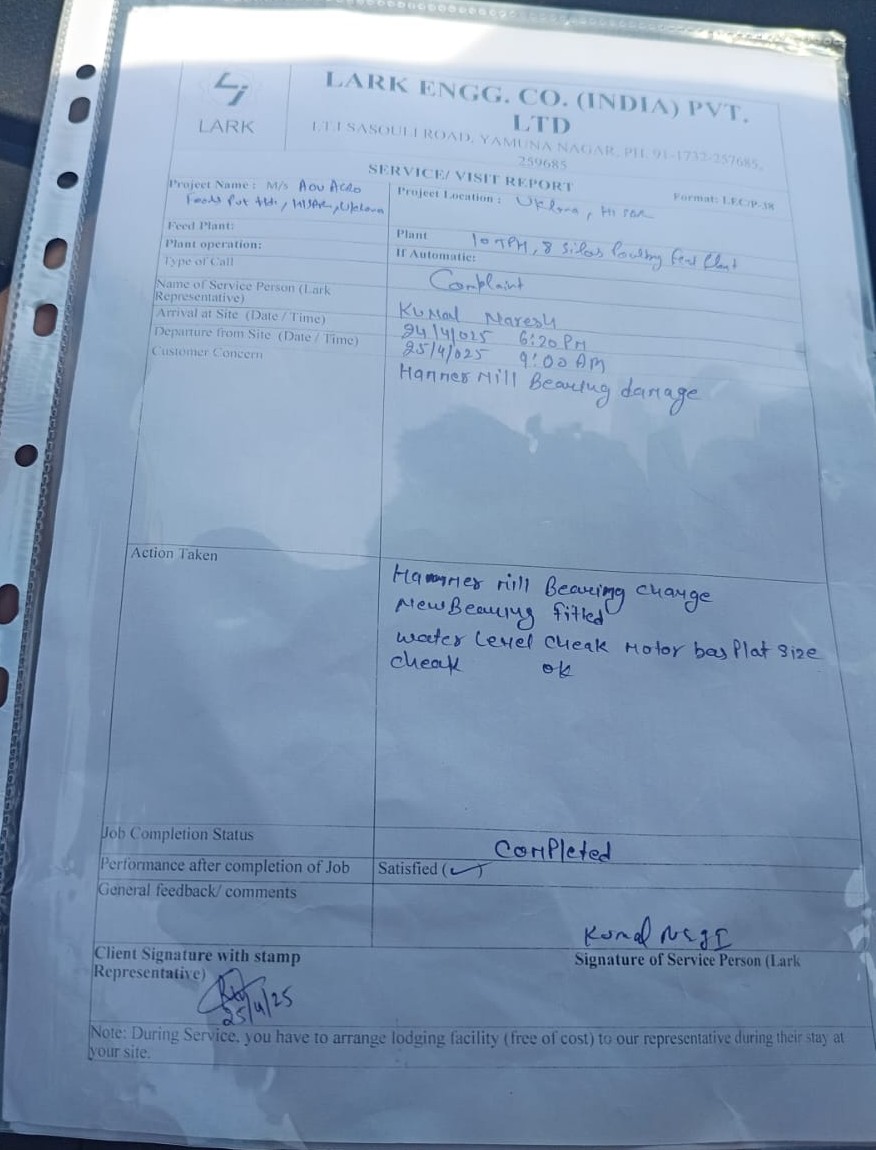 LARK
LARK ENGG. CO. (INDIA) PVT.
LTD
I.T.I SASOULI ROAD, YAMUNA NAGAR. PH. 91-1732-257685,
259685
SERVICE/ VISIT REPORT
Format: LEC/P-38
Project Name : M/s
Feeds Pvt Ltd, HISAR, Uklana
Project Location : Uklana, Hisar
Feed Plant:
Plant 10 TPH, 8 Silos Poultry Feed Plant
Plant operation:
If Automatic:
Type of Call
Complaint
Name of Service Person (Lark
Representative)
Kumal Naresh
Arrival at Site (Date / Time)
24/4/025 6:20 PM
Departure from Site (Date / Time)
25/4/025 9:00 AM
Customer Concern
Hanmer Mill Bearing damage
Action Taken
Hammer mill Bearing change
New Bearing fitted
water level cheak Motor bas Plat size
cheak ok
Job Completion Status
Completed
Performance after completion of Job
Satisfied (✓)
General feedback/ comments
Client Signature with stamp
Representative)
25/4/25
Signature of Service Person (Lark
Note: During Service, you have to arrange lodging facility (free of cost) to our representative during their stay at
your site.